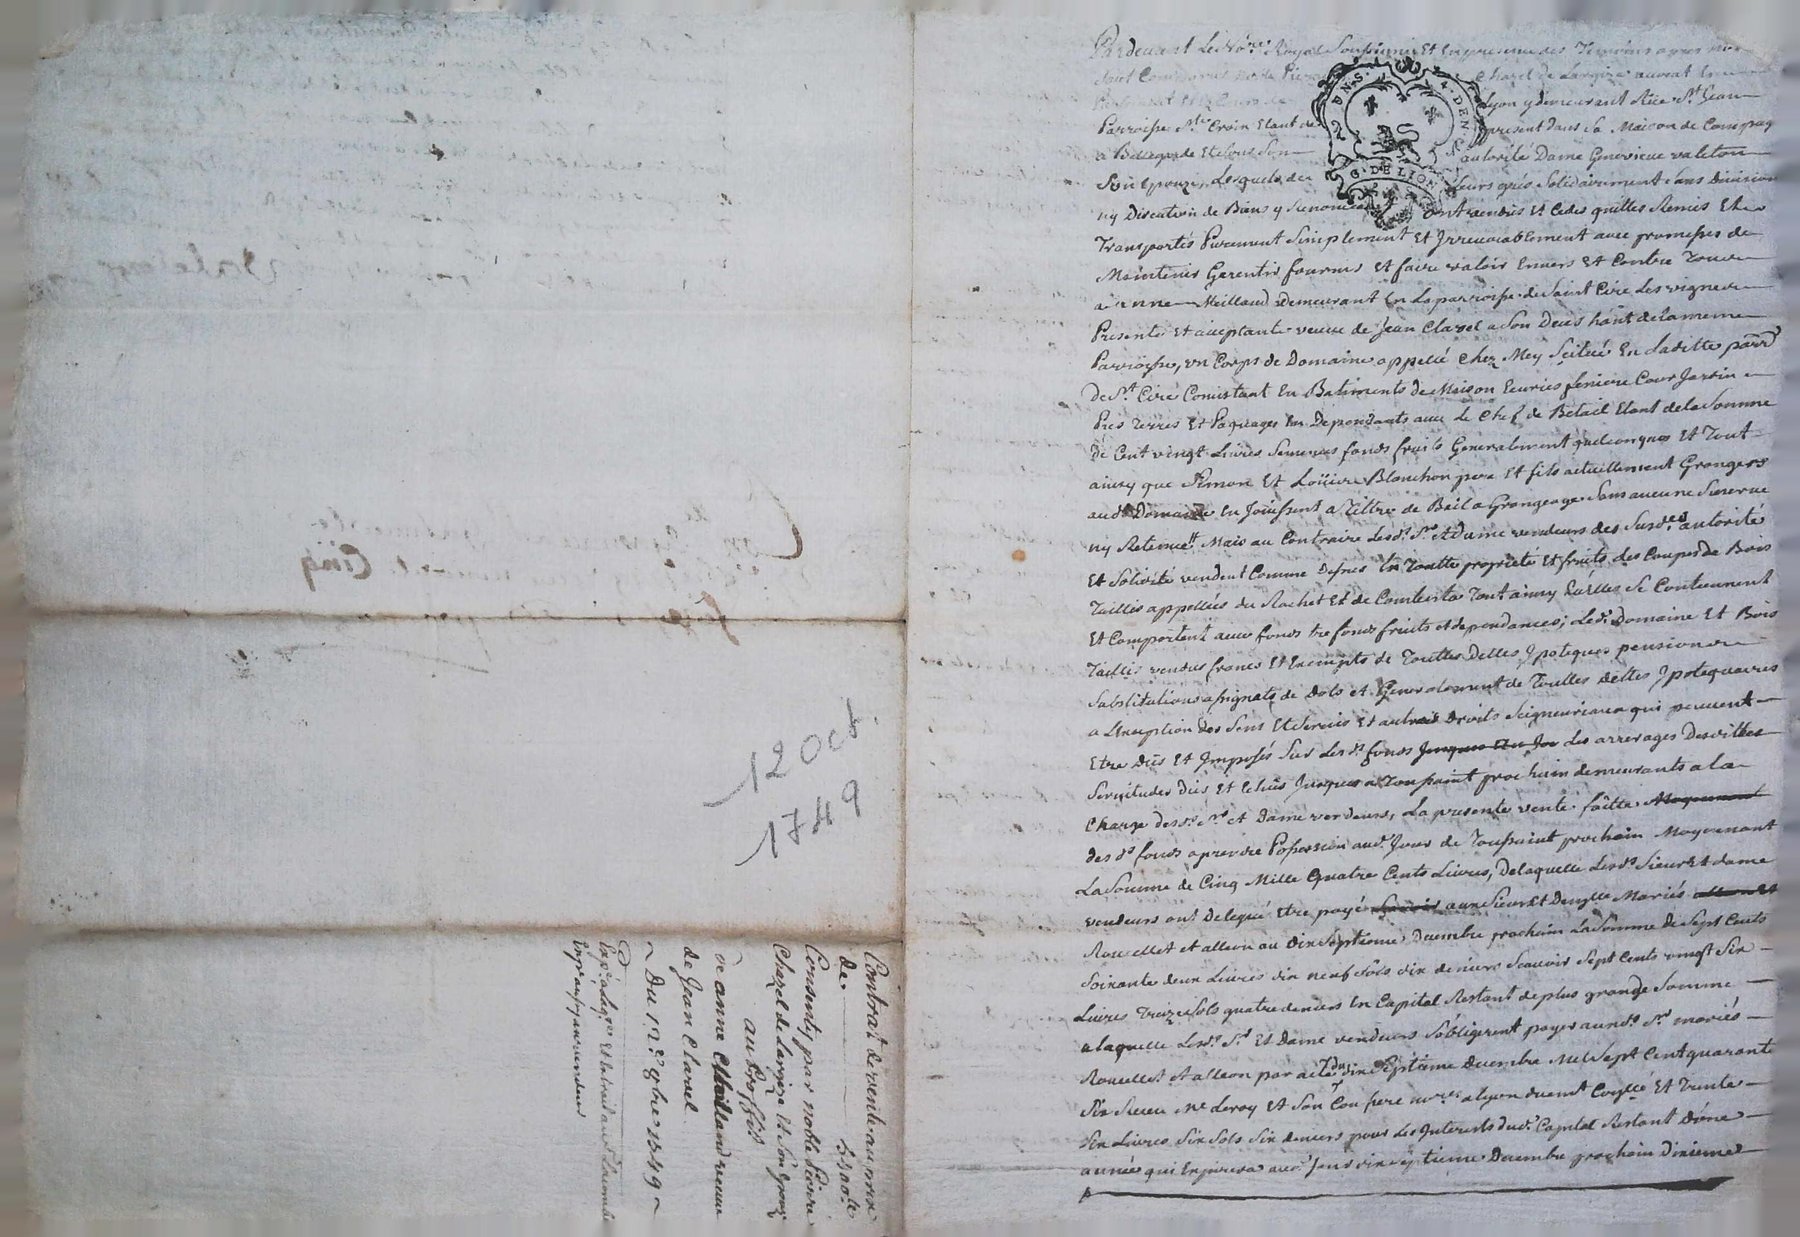 Pardevant Le No.re Royal Soussigné Et En presence des Temoins apres
Chazel de Largire avocat En
Lyon y demeurant Rüe St. Jean
Parroisse Ste. Croix Etant de present dans sa Maison de Campag
a Bellegarde Et sous son autorité Dame Genevieve valeton
Son Epouze, Lesquels de leurs grés Solidairement Sans Division
ny Discution de Biens y Renoncant ont vendus Et Cedés quittes Remis Et
Transportés Purement Simplement Et Irrevocablement avec promesses de
Maintenir Garentir fournir Et faire valoir Envers Et Contre Tous
a anne Meilland demeurant En La parroisse de Saint Cire Les vignes
Presente Et acceptante veuve de Jean Clavel a Son Deces hant de la meme
Parroisse, un Corps de Domaine appellé Chez Mey Scitué En Laditte parr.
De St. Cire Consistant En Batiments de Maison Ecuries feniere Cour Jardin
Prés Terres Et Paquages En Dependants avec Le Chef de Betail Etant de la Somme
de Cent vingt Livres Semences fonds fruits Generalement quelconques Et Tout
ainsy que Simon Et Loüis Blanchon pere Et fils actuellement Grangers
aud. Domaine En Joüissent a Tittre de Bail a Grangeage Sans aucune Reserve
ny Retenue Mais au Contraire Lesd. Sr. Et dame vendeurs des Susd.es autorité
Et Solidité vendent Comme dessus En Toutte proprieté Et fruits des Coupes de Bois
Taillis appellées du Rochet Et de Tout ainsy qu'elles Se Contiennent
Et Comportent avec fonds tres fonds fruits et dependances; Led. Domaine Et Bois
Taillis vendus francs Et Exempts de Touttes Dettes Ypoteques pensions
Substitutions assignats de dots et Generalement de Touttes dettes Ypotequaires
a L'exception des Sens Et Servis Et autres droits Seigneuriaux qui peuvent
Etre Düs Et Imposés Sur Lesd. fonds Les arrerages Desdittes
Servitudes Düs Et Echüs Jusques a Toussaint prochain demeurants a la
Charge desd. Sr. et Dame vendeurs, La presente vente faitte Moyennant
des d. fonds a prendre Possession aud. Jour de Toussaint prochain Moyennant
La Somme de Cinq Mille Quatre Cents Livres, De laquelle Lesds. Sieur Et dame
vendeurs ont Delegué Etre payé aux Sieur Et Demlle Mariés
Rouvellet et alleon au Dix Septieme Decembre prochain La Somme de Sept Cents
Soixante deux Livres dix neuf Sols dix deniers Scavoir Sept Cents vingt Six
Livres Treize Sols quatre deniers En Capital Restant de plus grande Somme
a laquelle Lesd. Sr. Et Dame vendeurs S'obligerent payer auxds. Srs. mariés
Rouvellet et alleon par acte du dix Septieme Decembre Mil Sept Cent quarante
Six Receu Me. Leroy Et Son Confrere no.res a Lyon duemt. Et Trente
Six Livres Six Sols Six deniers pour Les Interests dud. Capital Restant D'une
année qui Expirera aud. Jour dix Septieme Decembre prochain Dixieme
Valeton
Cinq
12 Oct
1749
Contrat de vente au prix
de 5400 lt
Consenty par noble Pierre
Chazel de Largire Et Son Epouze
au Proffit
de anne Mailland veuve
de Jean Clavel
Du 12.e 8bre 1749